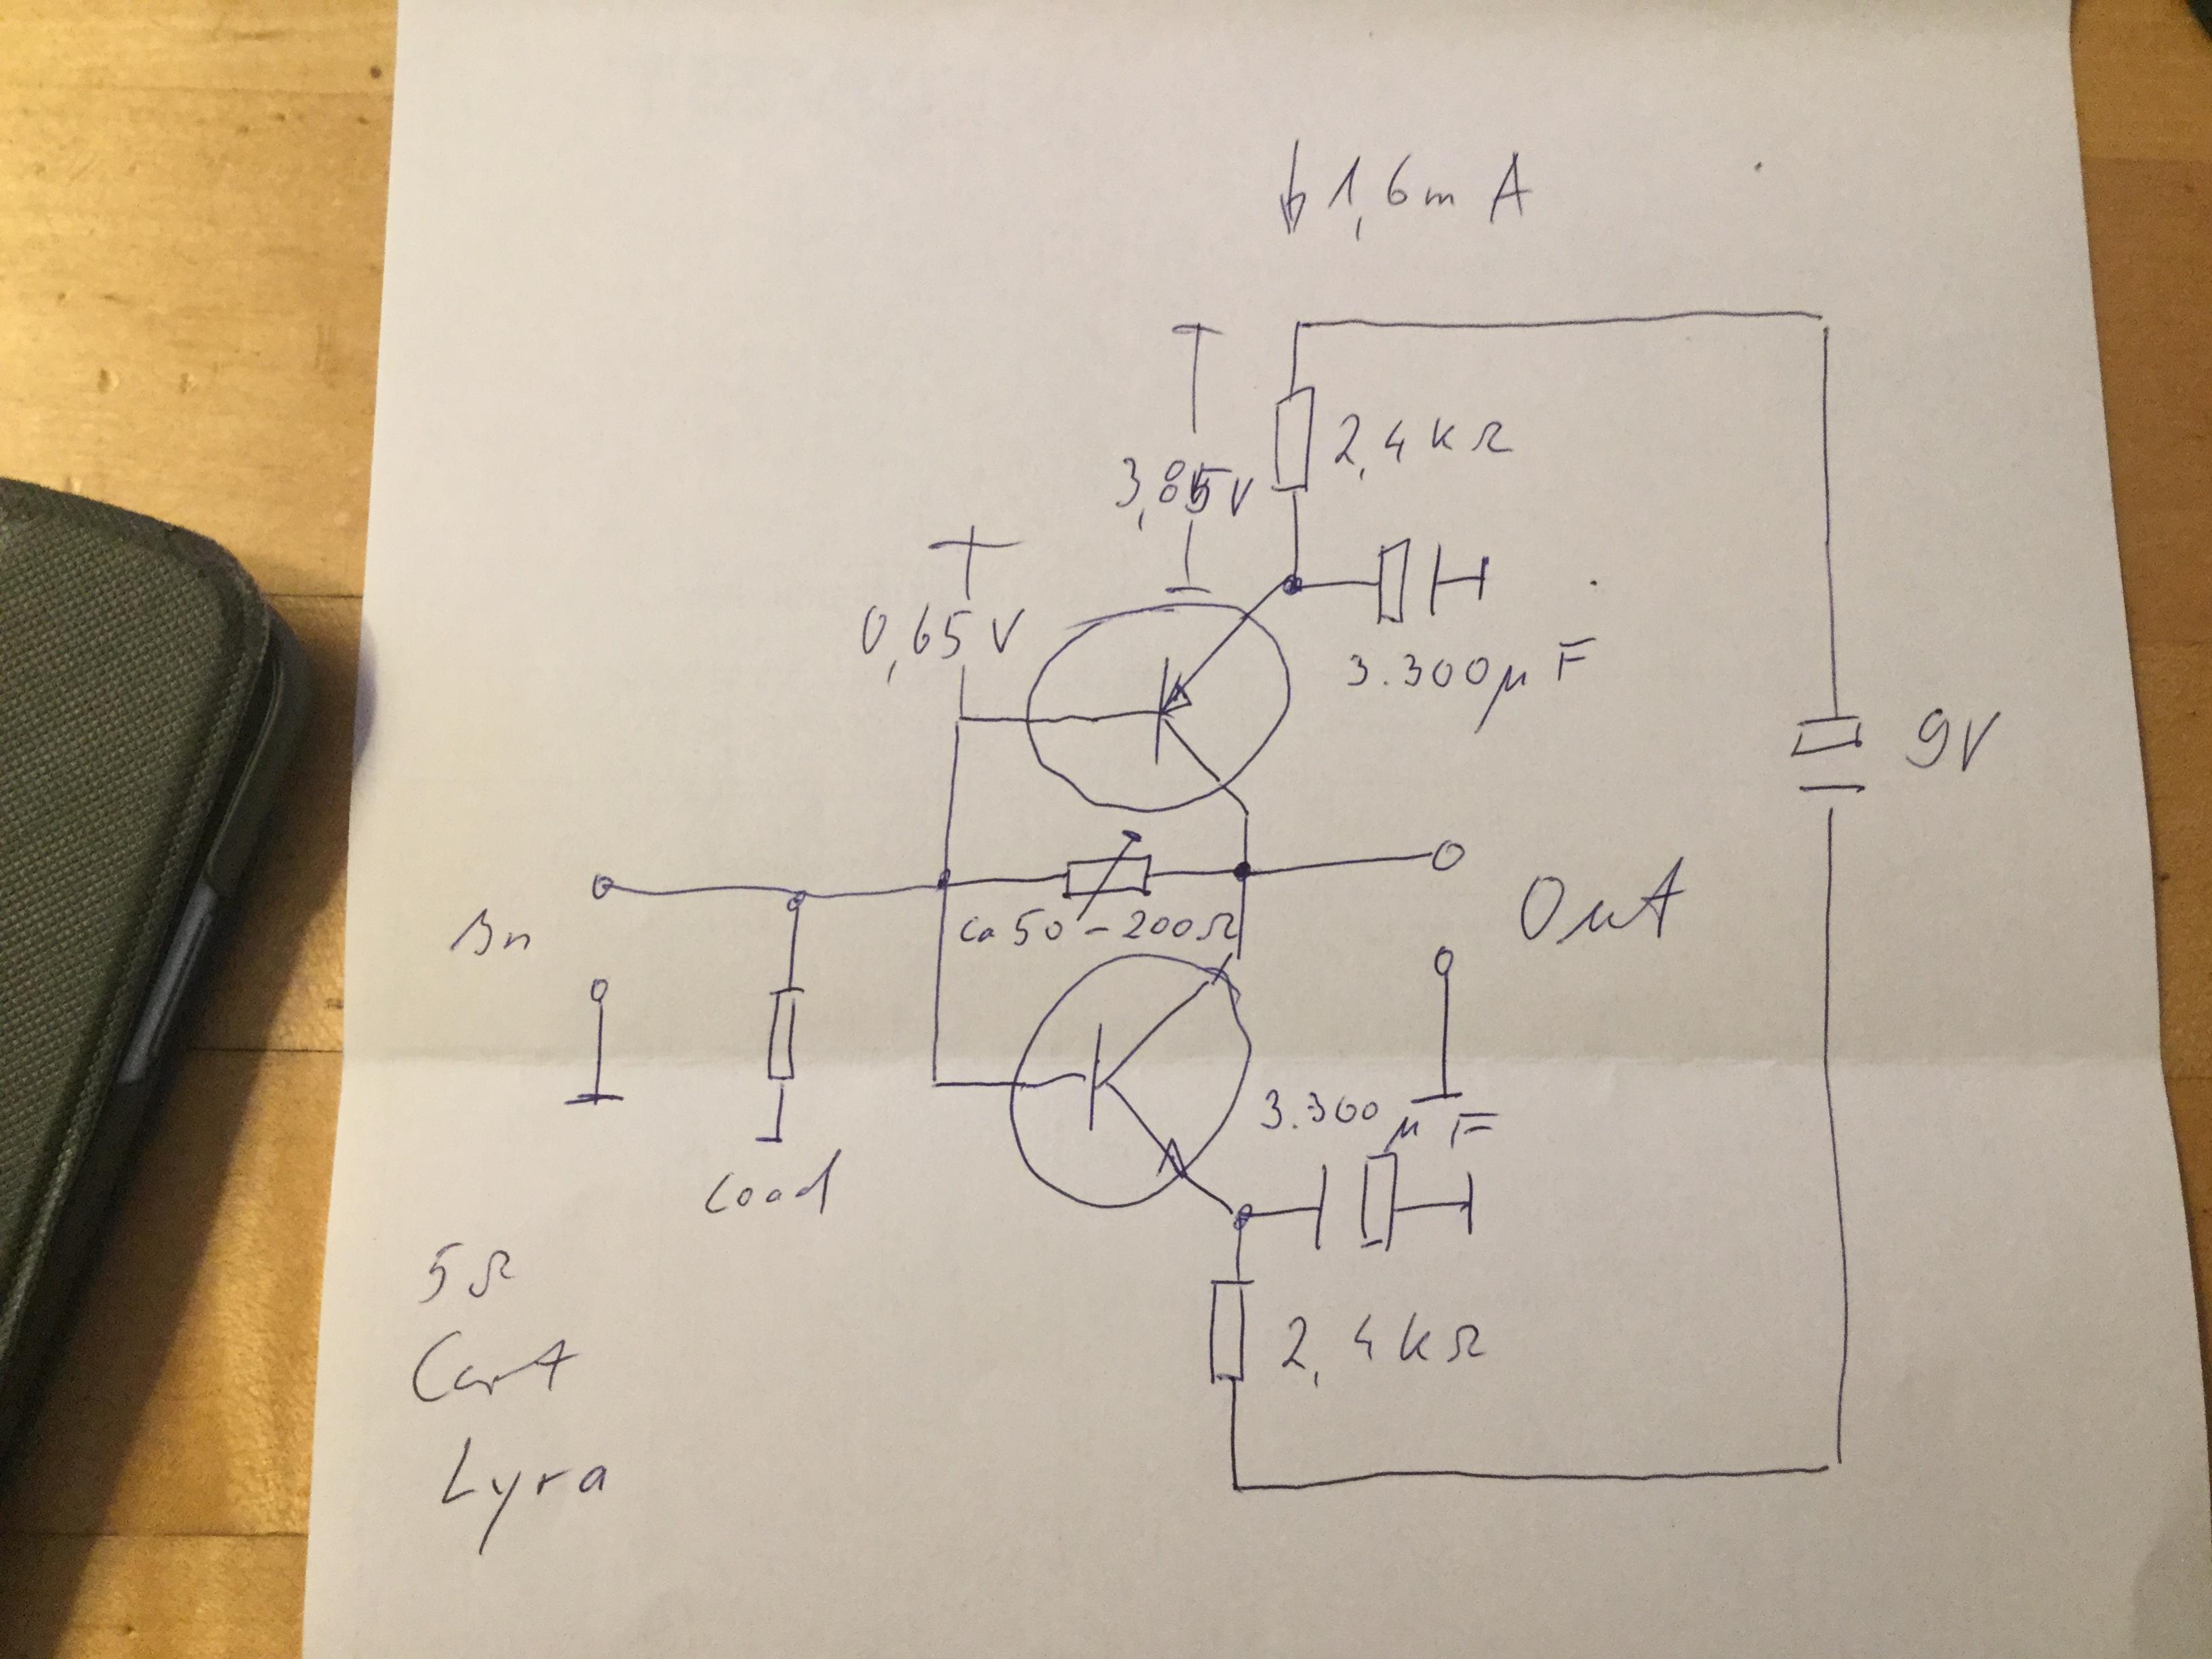 1,6mA
2,4kΩ
3,85V
0,65V
3.300µF
9V
In
ca 50-200Ω
Out
3.300µF
Load
5Ω
Cart
Lyra
2,4kΩ